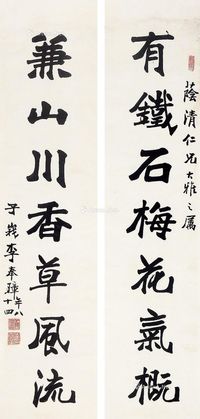 蔭清仁兄大雅之属
有鐵石梅花氣概
兼山川香草風流
子義李奉璋年八十四